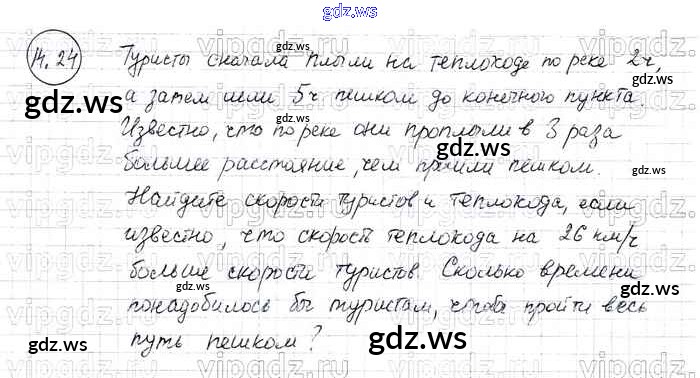 gdz.ws
14.24
Туристы сначала плыли на теплоходе по реке 2ч,
gdz.ws
gdz.ws
а затем шли 5ч пешком до конечного пункта.
gdz.ws
gdz.ws
Известно, что по реке они проплыли в 3 раза
большее расстояние, чем прошли пешком.
gdz.ws
Найдите скорости туристов и теплохода, если
известно, что скорость теплохода на 26 км/ч
gdz.ws
больше скорости туристов. Сколько времени
понадобилось бы туристам, чтобы пройти весь
gdz.ws
путь пешком?
gdz.ws
gdz.ws